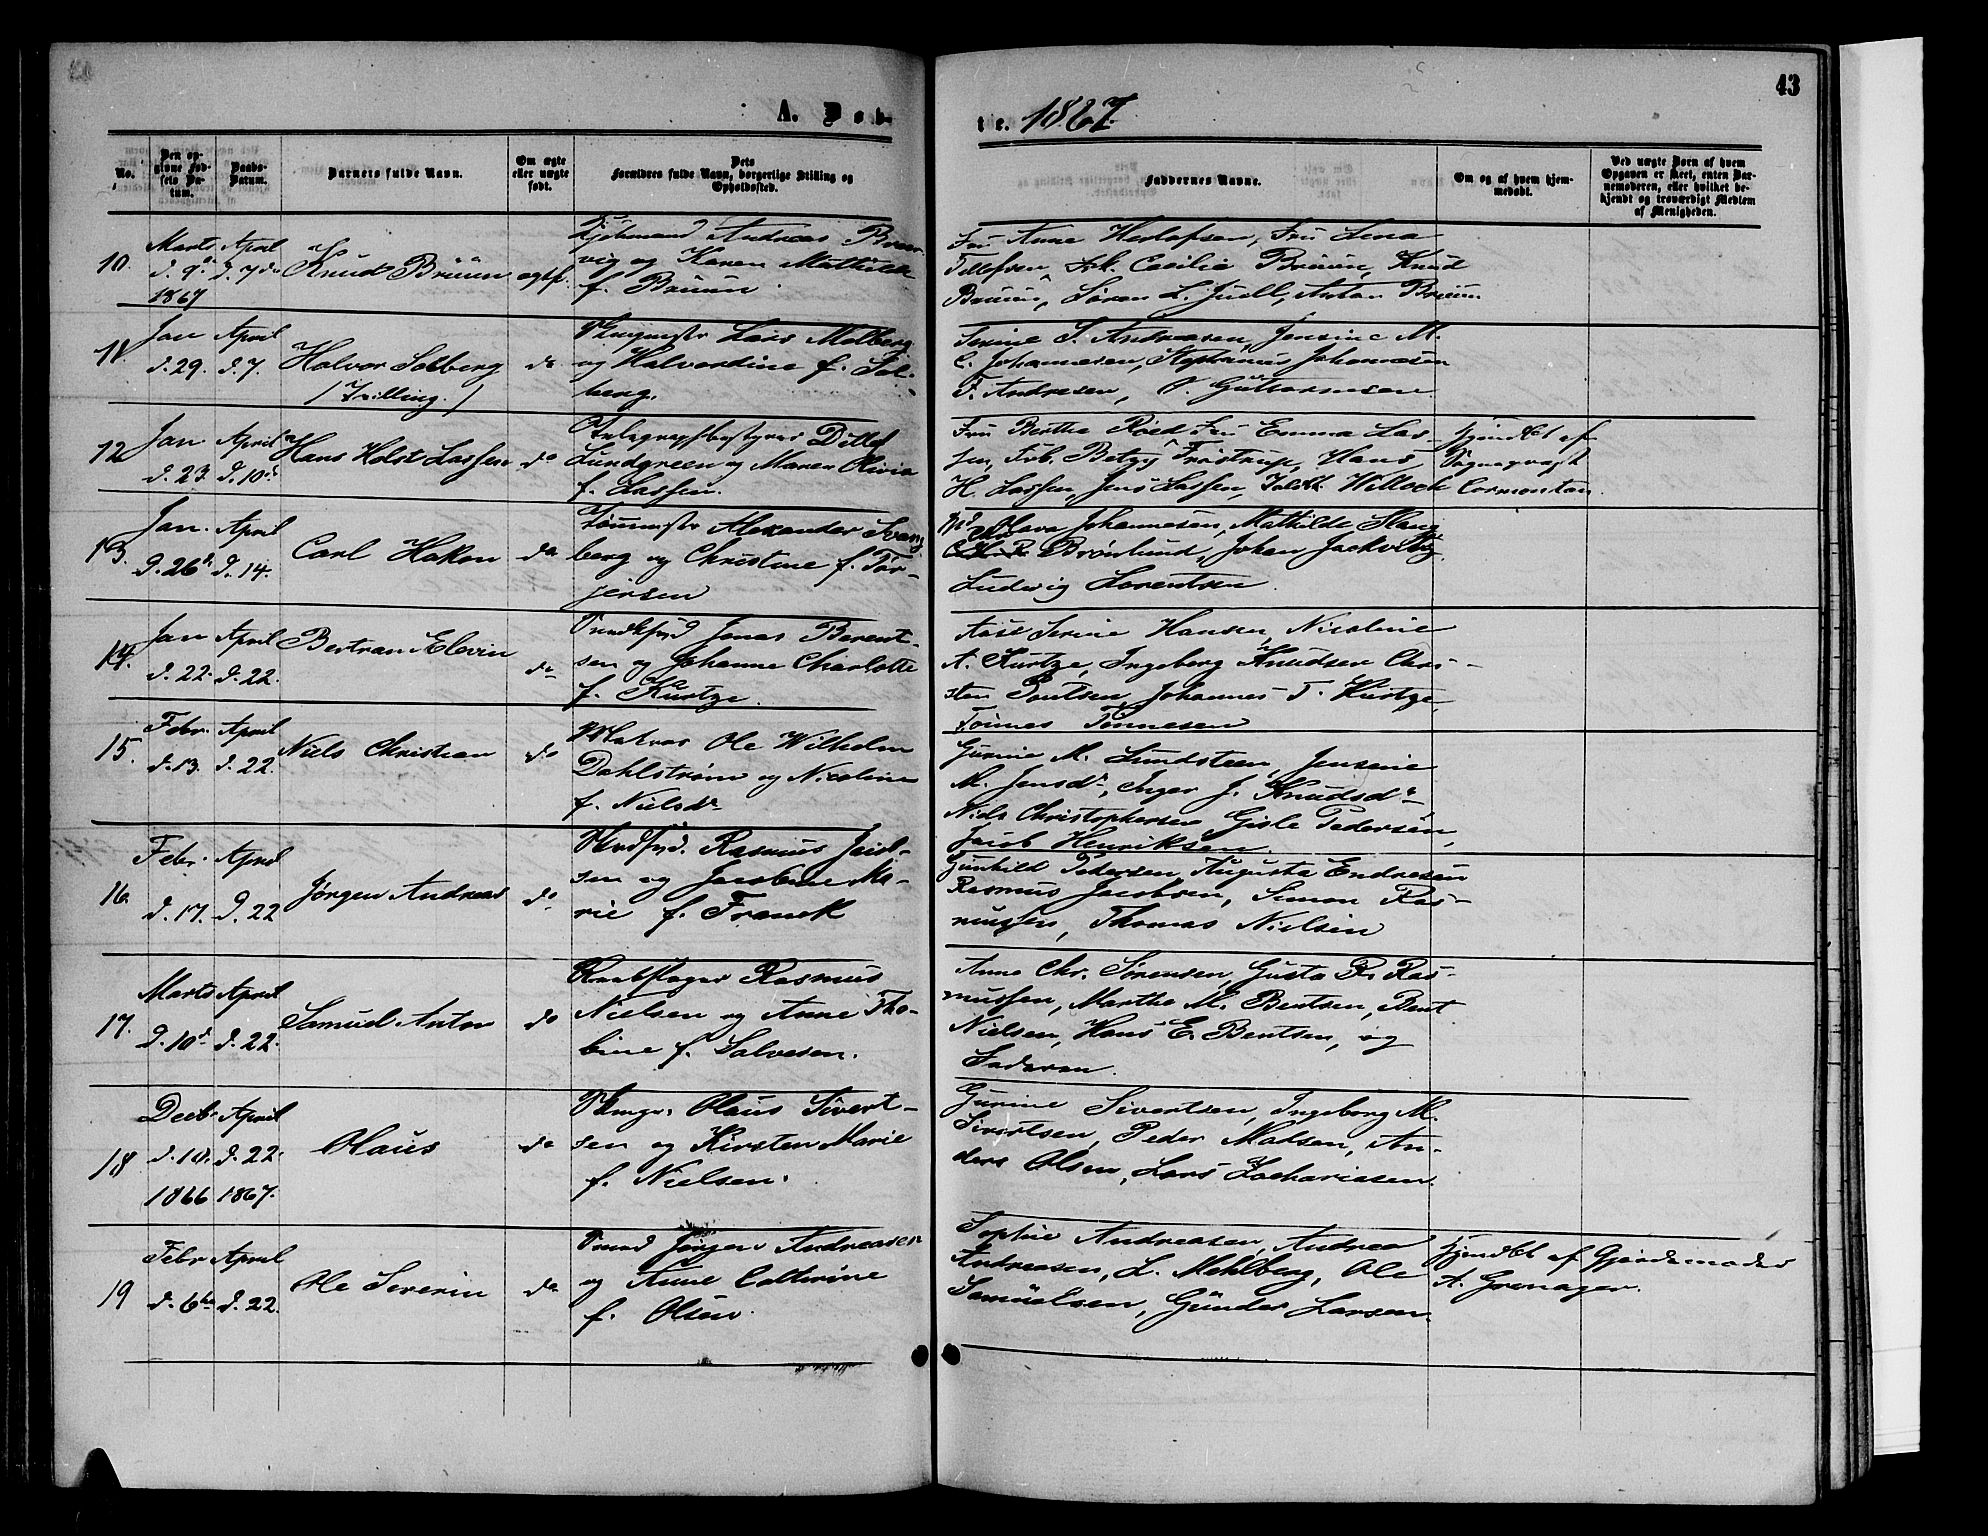 43
A. Døb-
te. 1867.
No.
Den op-
givne Fød-
sels Da-
tum.
Daabs-
Datum.
Barnets fulde Navn.
Om ægte
eller uægte
født.
Dets
Forældres fulde Navn, borgerlige Stilling og
Opholdssted.
Faddernes Navne.
Om og af hvem hjem-
medøbt.
Ved uægte Børn af hvem
Opgaven er skeet, enten Bar-
nemoderen, eller hvilket be-
kjendt og troværdigt Medlem
af Menigheden.
10.
Marts
d. 9de
1867
April
d. 7de
Knud Brüün
ægtef.
Kjøbmand Andreas
vig og Karen Mathilde
f. Brüün.
Fru Anne Herlofsen, Fru Lena
Tellefsen, Frk. Cecilia Brüün, Knud
Brüün, Søren L. Juell, Anton Brüün
11.
Jan
d. 29.
April
d. 7.
Halvor Solberg
/Tvilling./
do
Lars Molberg
og Halvordine f. Sol-
berg.
Serine S. Andreasen, Jensine M.
C. Johannesen, Stephanus Johannesen
F. Andresen, Guttormsen
12
Jan
d. 23.
April
d. 10de
Hans Holst Lassen
do
Telegrafbestyrer Ditlef
Lundgreen og Maren Olivia
f. Lassen.
Fru Berthe Röed Fru Emma Las-
sen, Frk. Betzy Frostrup, Hans
H. Lassen, Jens Lassen, Willoch
hjemdbt af
Sognepræst
Cormontan.
13.
Jan.
d. 26de
April
d. 14.
Carl Hakon
do
Tømmermstr Alexander Svane
berg og Christine f. Tor-
jersen
Olava Johannesen, Mathilde Haug
Brönlund, Johan Jackvitz,
Ludvig Lorentsen.
14.
Jan
d. 22.
April
d. 22.
Bertran Elevin
do
Jonas Berent-
sen og Johanne Charlotte
f. Kurtze.
Aase Serine Hansen, Nicoline
A. Kurtze, Ingeborg Knudsen Chri-
sten Poulsen, Johannes T. Kurtze,
Tönnes Tönnesen
15.
Febr.
d. 13.
April
d. 22.
Niels Christian
do
Matros Ole Wilhelm
Dahlström og Nicoline
f. Nielsdr
Gurine M. Lundsteen, Jensine
M. Jensdr, Inger J. Knudsdr
Niels Christophersen Gisle Pedersen,
Jacob Henriksen.
16.
Febr.
d. 17.
April
d. 22
Jørgen Andreas
do
Rasmus Jacob-
sen og Jacobine Ma-
rie f. Franck
Gunhild Pedersen, Augusta Endresen
Rasmus Jacobsen, Simon Ras-
mussen, Thomas Nielsen
17.
Marts
d. 10de
April
d. 22.
Samuel Anton
do
Rebslager Rasmus
Nielsen og Anne Tho-
bine f. Salvesen.
Anne Chr. Sørensen, Gusta R. Ras-
mussen, Marthe M. Bentsen, Bent
Nielsen, Hans E. Bentsen, og
Faderen.
18
Decbr
d. 10.
1866
April
d. 22.
1867.
Olaus
do
Olaus Sivert-
sen og Kirsten Marie
f. Nielsen.
Gurine Sivertsen, Ingeborg M.
Sivertsen, Peder Madsen, An-
ders Olsen, Lars Zachariasen.
19
Febr
d. 6te
April
d. 22.
Ole Severin
do
Jørgen Andreasen
og Anne Cathrine
f. Olsen.
Sophie Andreasen, Andrea
Andreasen, L. Mehlberg, Ole
Samuelsen, Gunder Larsen.
hjemdbt af Gjordemoder
A. Grenager.